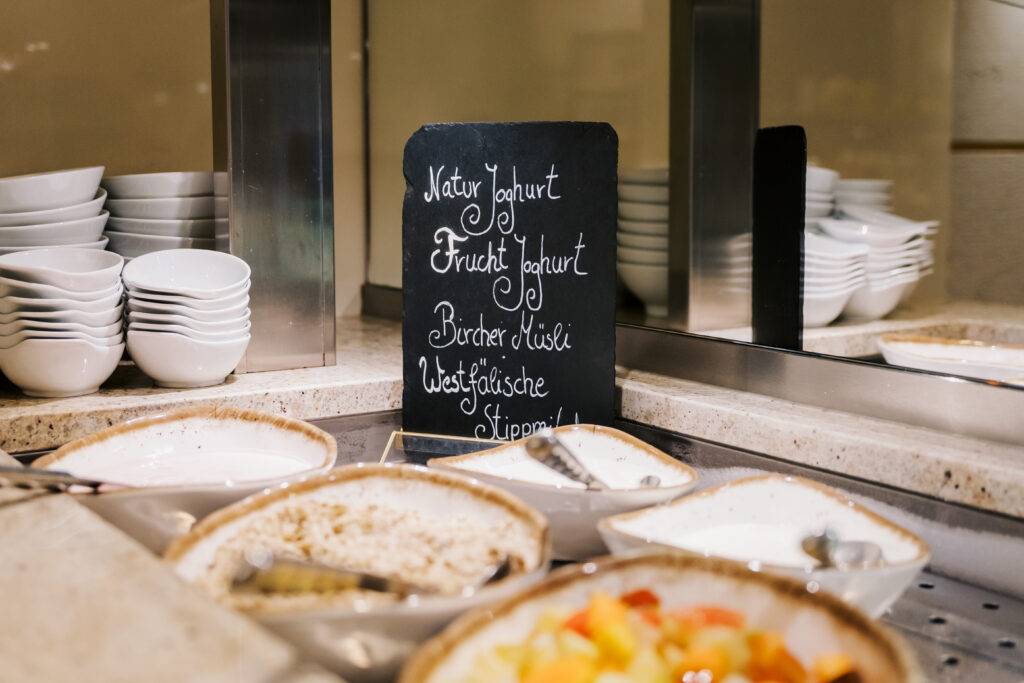 Natur Joghurt
Frucht Joghurt
Bircher Müsli
Westfälische